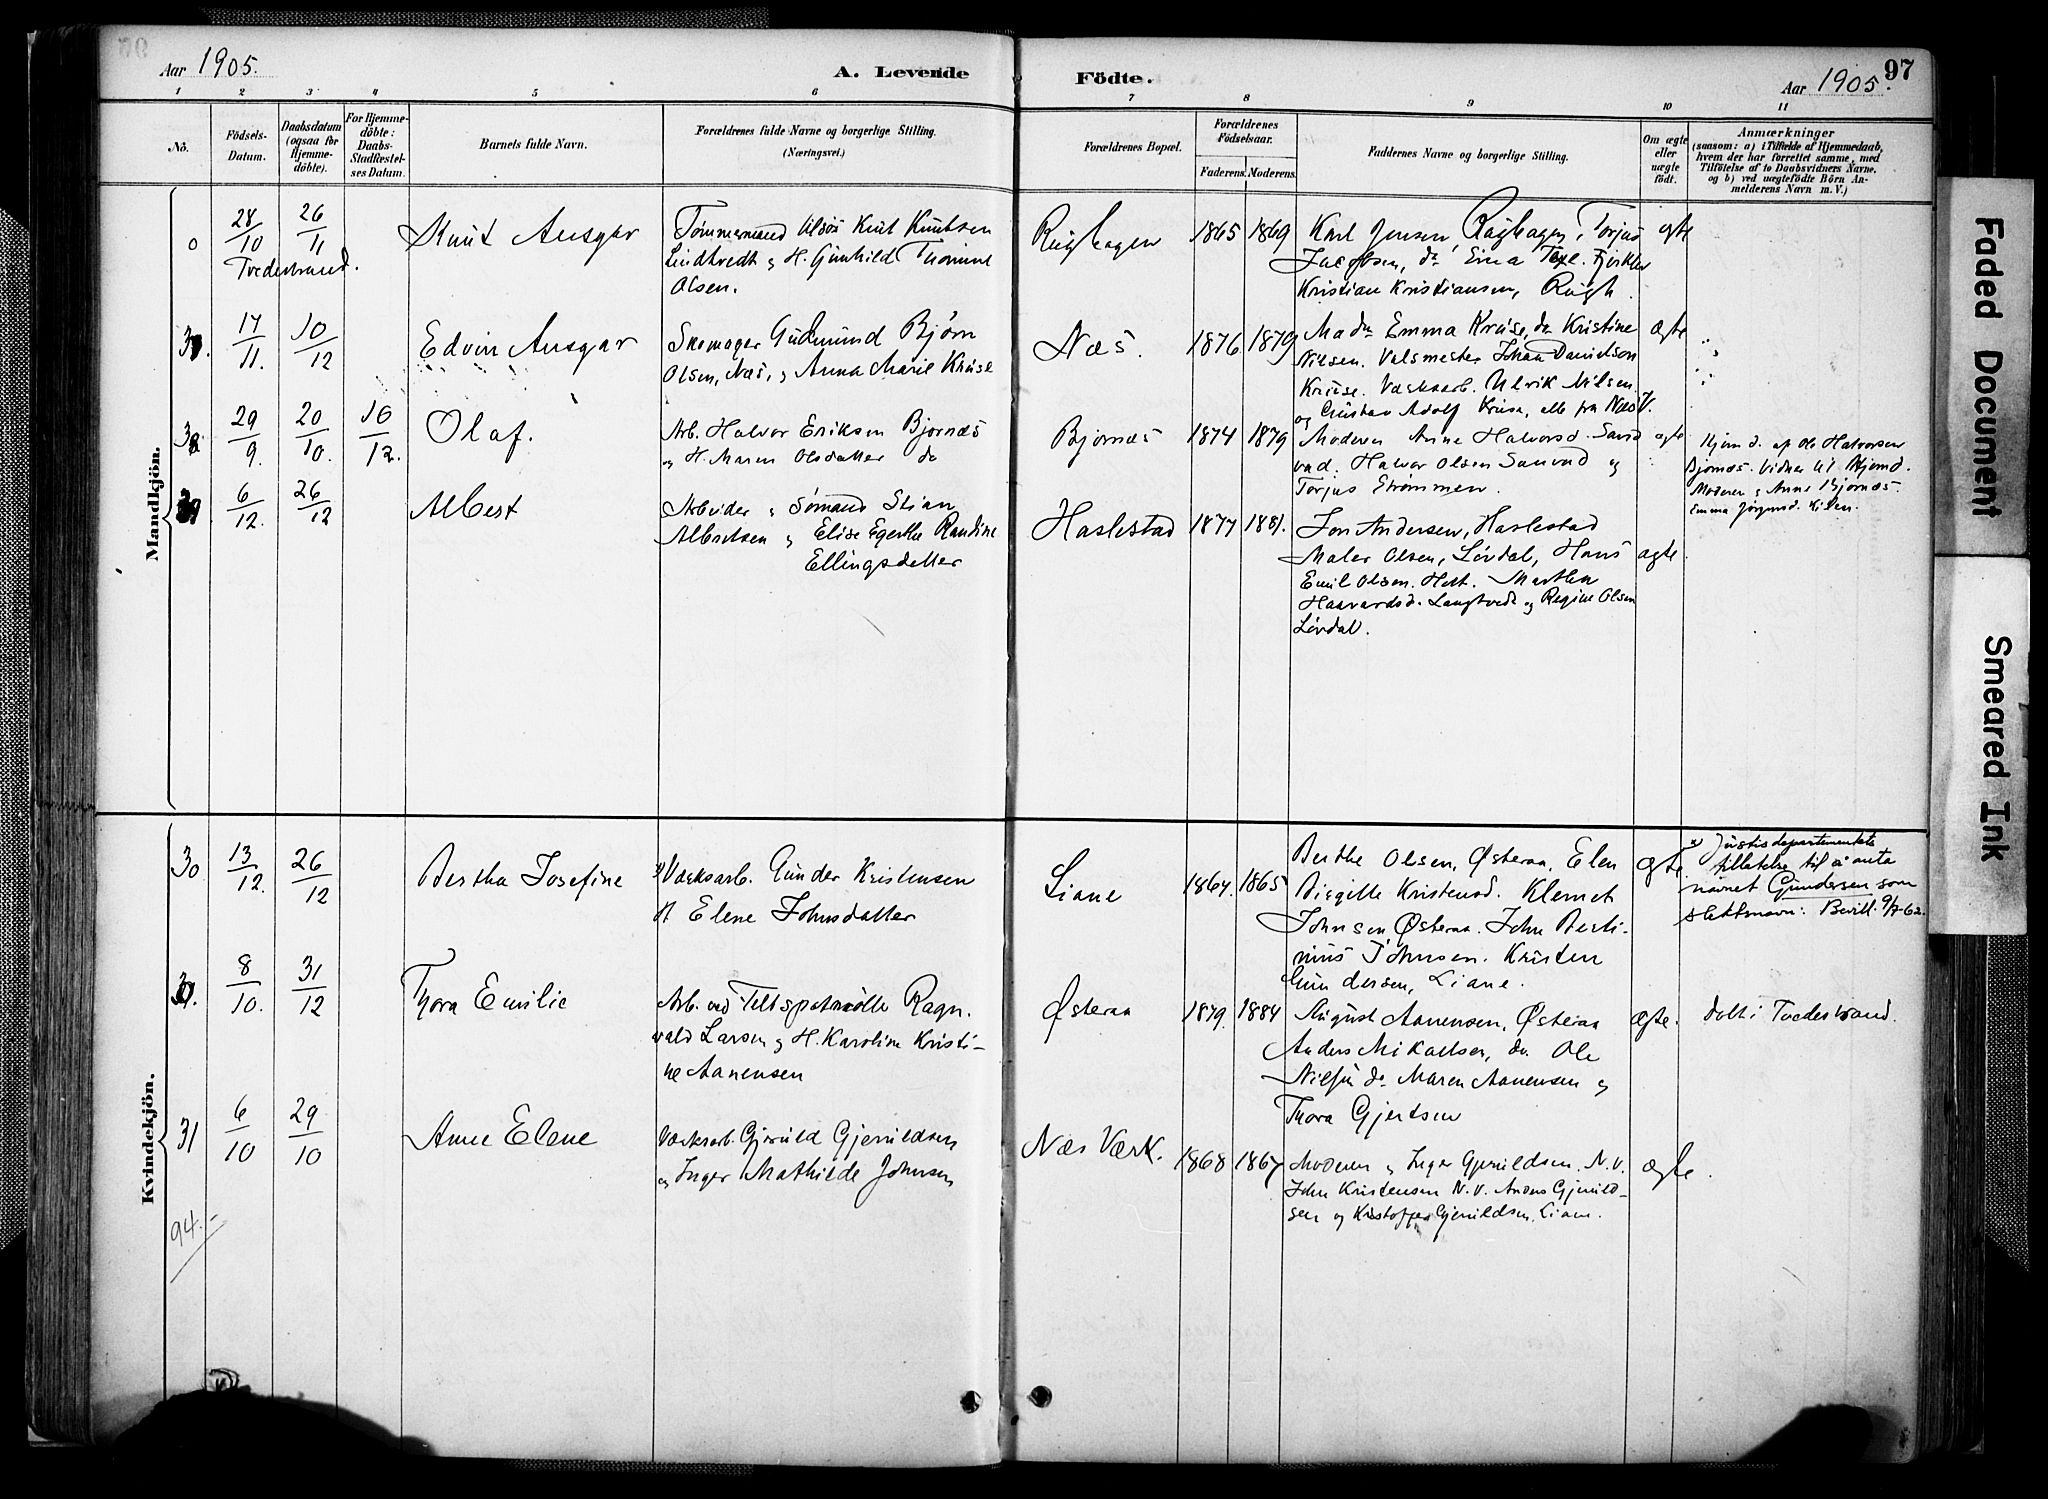 Aar 1905.
A. Levende Födte.
Aar 1905. 97
1 2 3 4 5 6 7 8 9 10 11
Nô.
Födsels-Datum.
Daabsdatum (ogsaa for Hjemmedöbte).
For Hjemmedöbte: Daabs-Stadfestelses Datum.
Barnets fulde Navn.
Forældrenes fulde Navne og borgerlige Stilling. (Næringsvei.)
Forældrenes Bopæl.
Forældrenes Födselsaar.
Faderens. Moderens.
Faddernes Navne og borgerlige Stilling.
Om ægte eller uægte födt.
Anmærkninger
(saasom: a) i Tilfælde af Hjemmedaab, hvem der har forrettet samme, med Tilföielse af to Daabsvidners Navne. og b) ved uægtefödte Börn Anmelderens Navn m. V.)
Mandkjön.
0 28/10 26/11
Tvedestrand.
Knut Ansgar
Tømmermand Knut Knutsen
Lindtvedt og H. Gunhild
Olsen.
Röghagen 1865 1869
Karl Jensen, Röghagen, Torjus
Jacobsen, do
Kristian Kristiansen, Rögh.
ægte
17/11. 10/12
Edvin Ansgar
Skomager Gudmund Bjørn
Olsen, Næs, og Anna Marie Kruse
Næs. 1876 1879
Mada Emma Kruse, do Kristine
Nilsen. Valsmester Johan Davidson
Kruse. Værksarb. Ulrik Nilsen
og Gustav Adolf Kruse, alle fra Næs V.
ægte
29/9. 20/10. 10/12.
Olaf.
Arb. Halvor Eriksen Bjornæs
og H. Maren Olsdatter do
Bjornæs 1874 1879
Moderen Anne Halvorsd. Sand
vad. Halvor Olsen Sanvad og
Torjus Strømmen.
ægte
Hjem d. af Ole Halvorsen
Bjornæs. Vidner til Hjemd.
Moderen og Anne Bjornæs.
Emma Jörgensd. Kilen.
6/12. 26/12
Albert
Arbeider & Sömand Stian
Albertsen og Elise Egerthe Randine
Ellingsdatter
Haslestad 1877 1881.
Jon Andersen, Haslestad
Maler Olsen, Lövdal, Hans
Emil Olsen. Holt. Marthea
Haavardsd. Langtvedt og Regine Olsen
Lövdal.
ægte
Kvindekjön.
30 13/12. 26/12
Bertha Josefine
Værksarb. Gunder Kristensen
H Elene Johnsdatter
Liane 1864. 1865
Berthe Olsen, Østeraa, Elen
Birgitte Kristensd. Klemet
Johnsen Østeraa. John Berti-
nius Johnsen. Kristen
Gundersen, Liane.
ægte
Justisdepartementets
tillatelse til å anta
navnet Gundersen som
slektsnavn: Bevill. 9/7-62.
8/10. 31/12
Thora Emilie
Arb. ved Feltspatmölle Ragn.
vald Larsen og H. Karoline Kristi-
ne Aanensen
Østeraa 1879. 1884
August Aanensen, Østeraa
Anders Mikaelsen, do Ole
Nilsen do Maren Aanensen og
Thora Gjertsen
ægte.
døbt i Tvedestrand.
31 6/10 29/10
Anne Elene
Værksarb. Gjeruld Gjeruldsen
og Inger Mathilde Johnsen
Næs Værk. 1868 1867
Moderen og Inger Gjeruldsen. N.V.
John Kristensen N.V. Anders Gjeruld-
sen og Kristoffer Gjeruldsen, Liane.
ægte
94.-
Faded Document
Smeared Ink